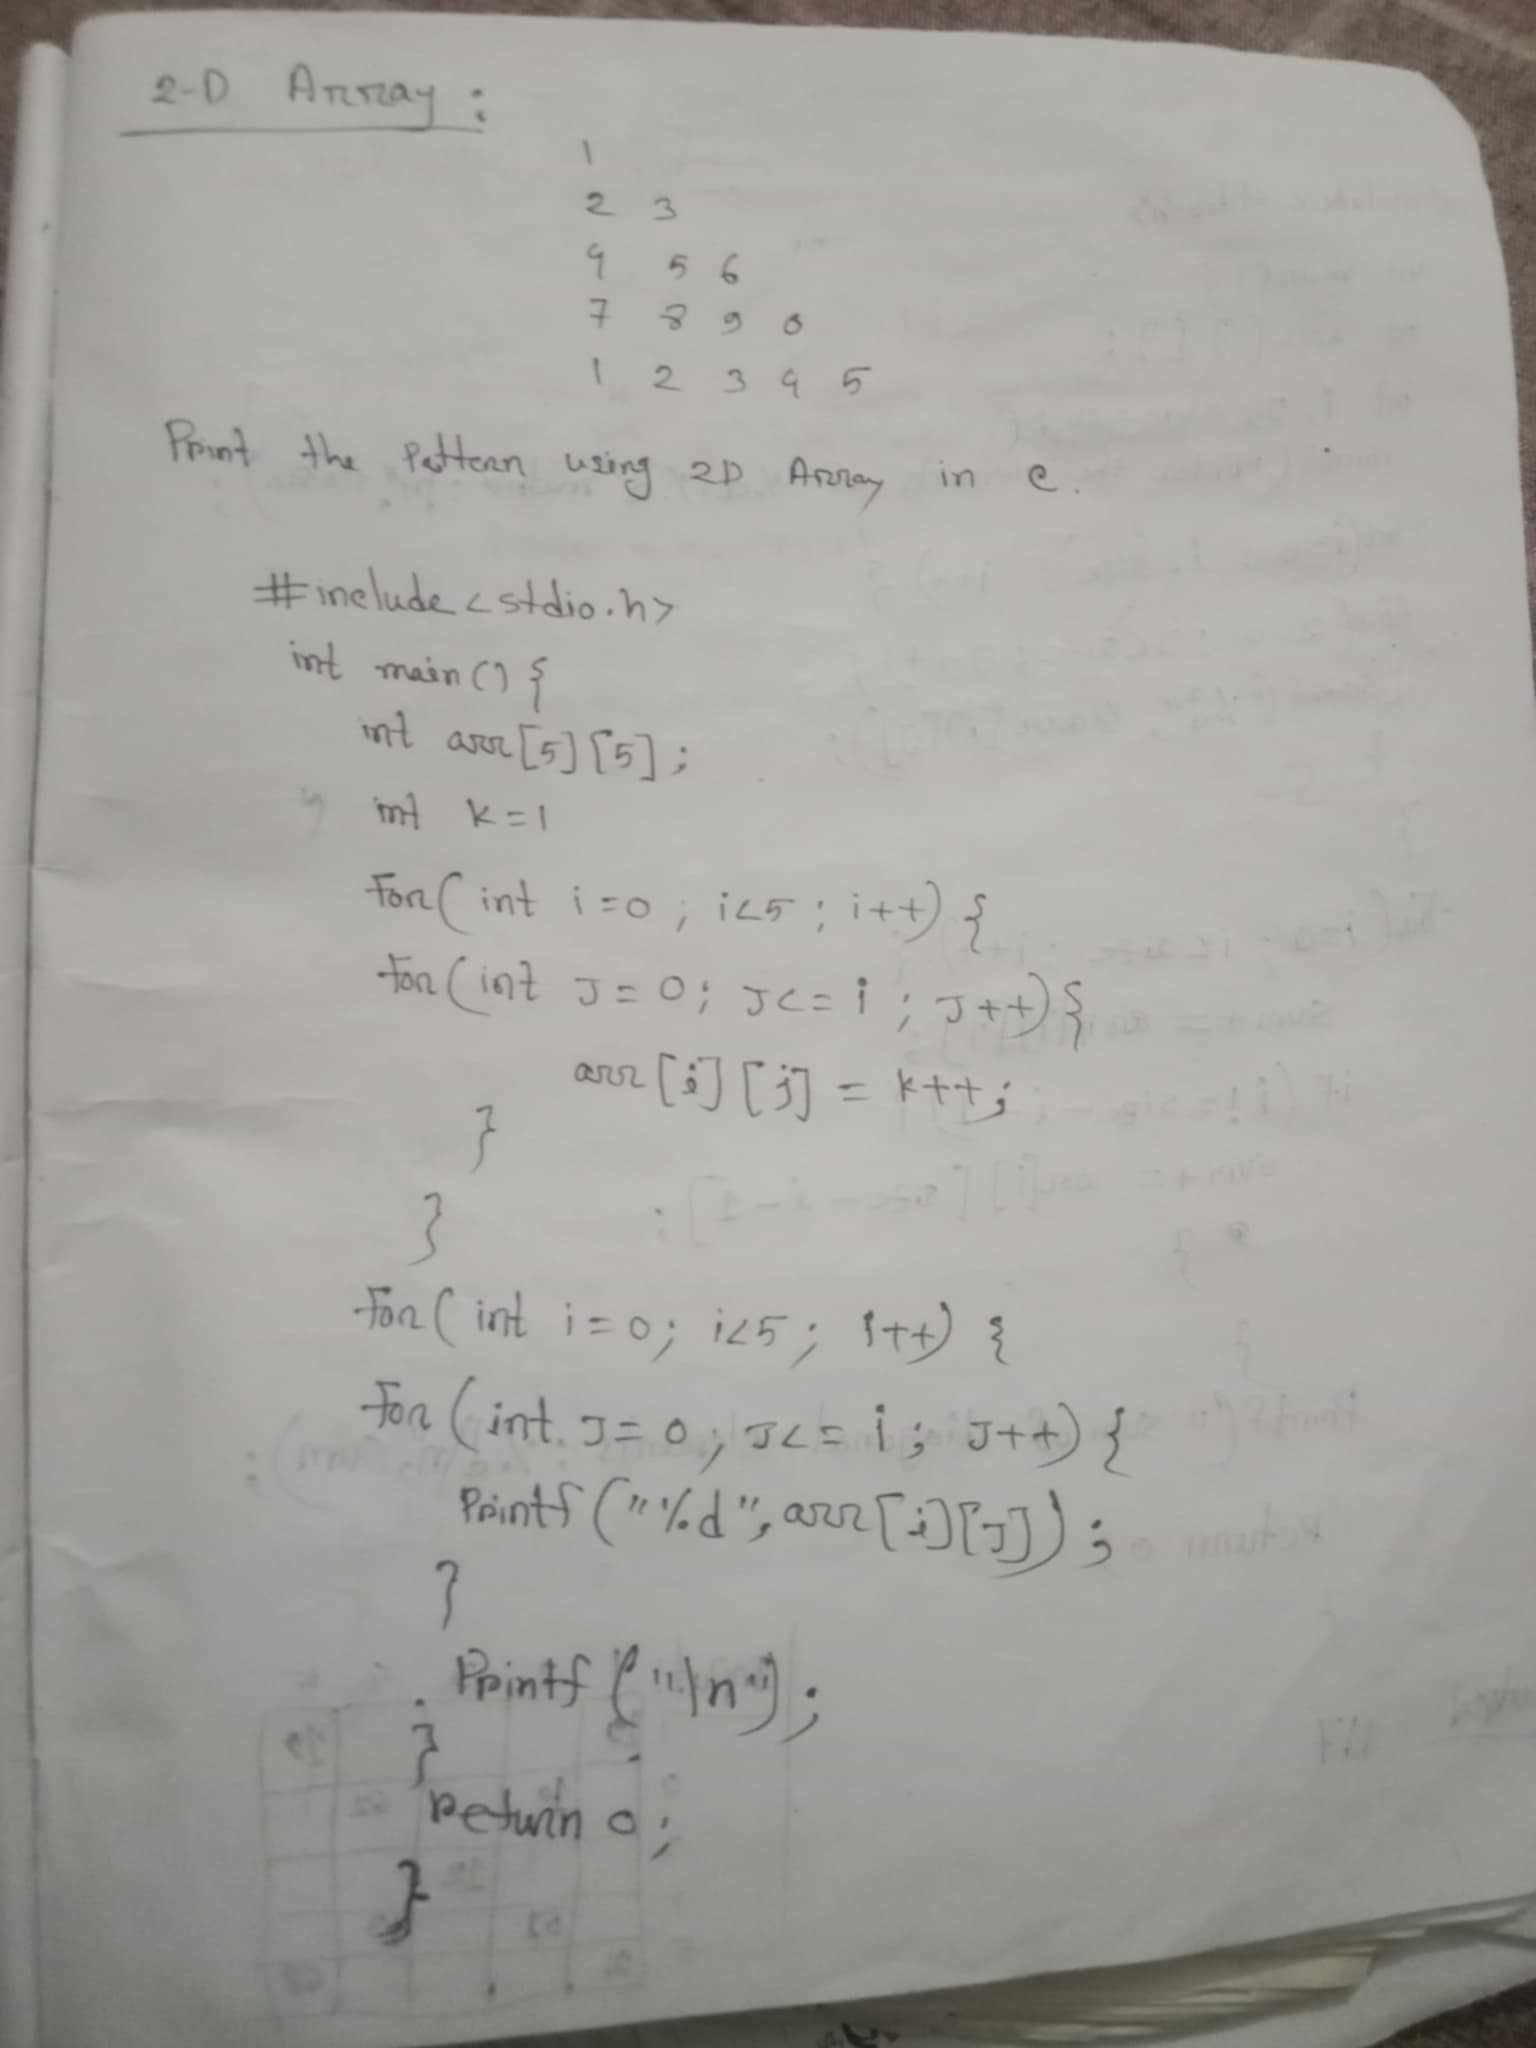 2-D Array :
1
2 3
4 5 6
7 8 9 0
1 2 3 4 5
Print the Pattern using 2D Array in c.
#include<stdio.h>
int main() {
int arr[5][5];
int k=1
For(int i=0; i<5; i++) {
For(int J=0; J<=i; J++){
arr[i][j] = k++;
}
}
For(int i=0; i<5; i++) {
For(int J=0; J<=i; J++) {
Printf("%d", arr[i][J]);
}
Printf("\n");
}
Return 0;
}